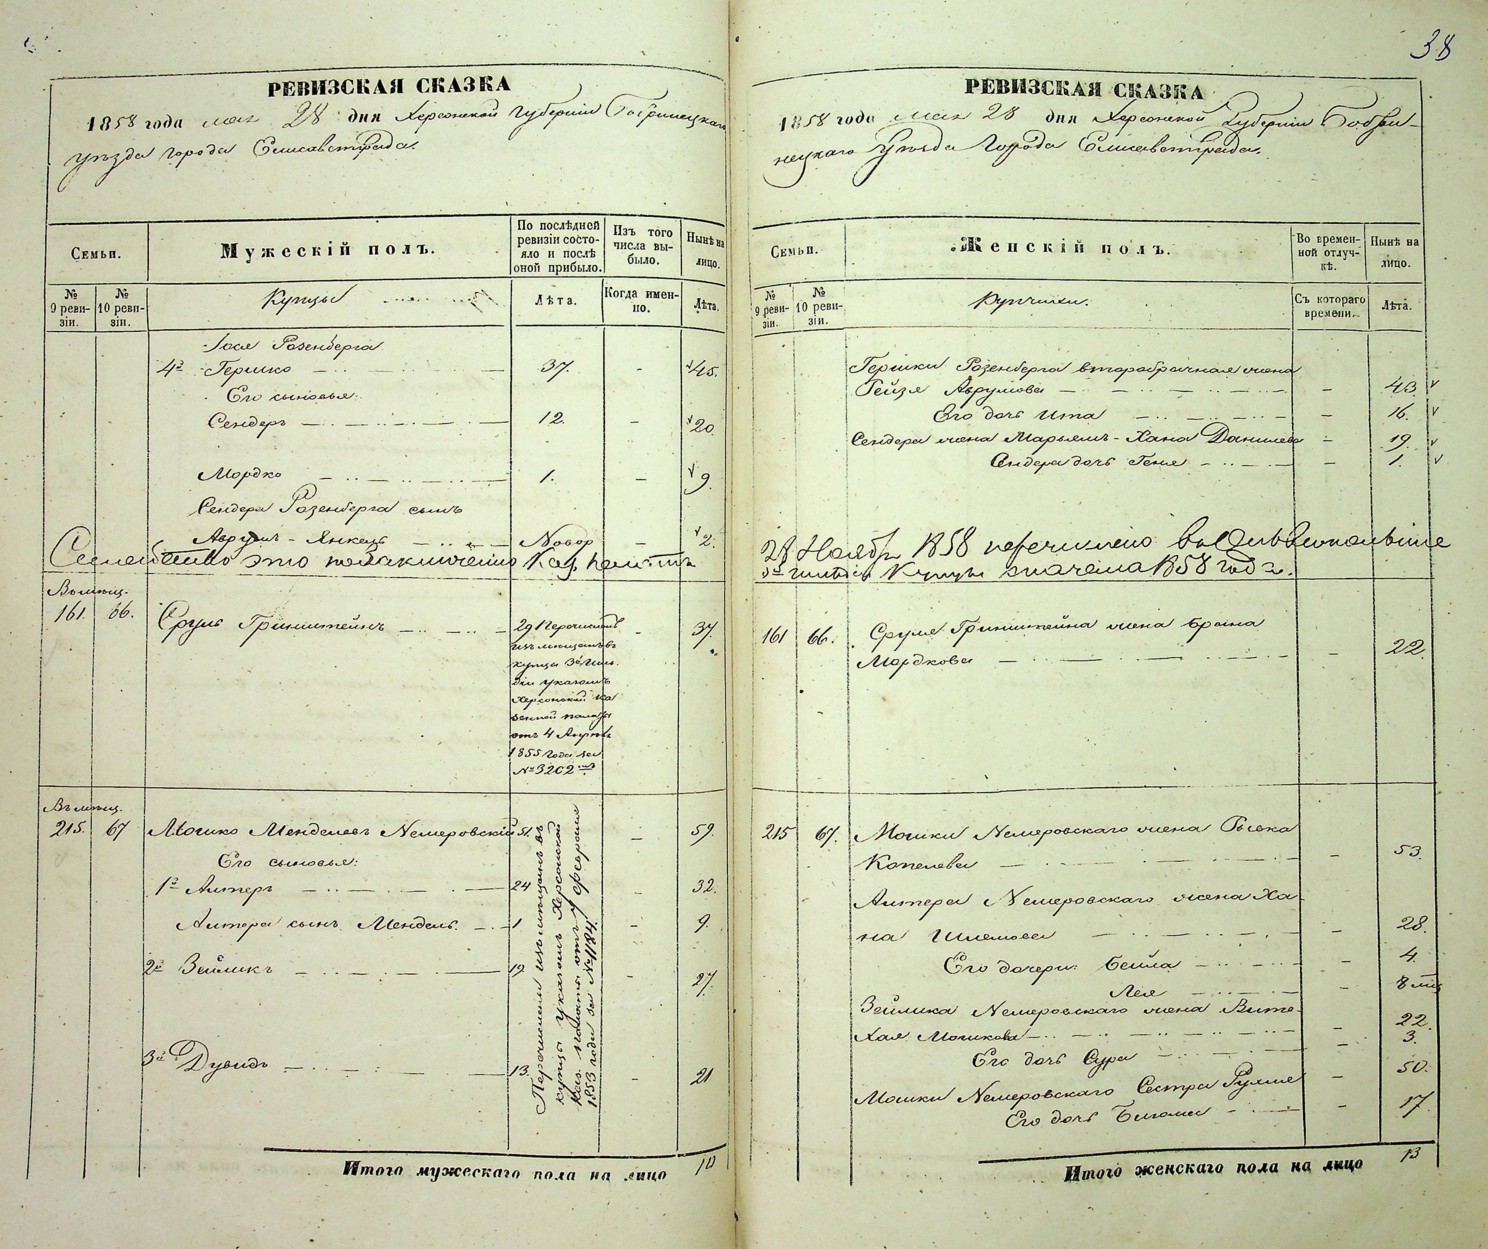 38
РЕВИЗСКАЯ СКАЗКА
1858 года мая 28 дня Херсонской Губернии Бобринецкаго
уѣзда города Елисаветграда.
Семьи.
Мужескій полъ.
По послѣдней ревизіи состояло и послѣ оной прибыло.
Изъ того числа выбыло.
Нынѣ на лицо.
№ 9 ревизіи.
№ 10 ревизіи.
Купцы
Лѣта.
Когда именно.
Лѣта.
Іося Розенберга
4й Гершко 37. - 45.
Его сыновья:
Сендеръ 12. - 20.
Мордко 1. - 9.
Сендера Розенберга сынъ
Аврумъ-Янкель Новор - 2.
Семейство это по заключенію Каз. палаты
Въ мѣщ.
161. 66. Сруль Гринштейнъ 29 Перечисленъ - 37.
изъ мѣщанъ въ
купцы 3й Гиль
діи указомъ
Херсонской Ка
зенной палаты
отъ 4 Апрѣля
1855 года за
№ 3202
Въ мѣщ.
215. 67 Мошко Менделевъ Немеровскій 51. - 59.
Его сыновья:
1й Алтеръ 24 - 32.
Алтера сынъ Мендель. 1 - 9.
2й Зейликъ 19 - 27.
3й Дувидъ 13. - 21
Перечислены изъ мѣщанъ въ
купцы указомъ Херсонской
Каз. палаты отъ 9 февраля
1853 года за № 1184.
Итого мужескаго пола на лицо 10
РЕВИЗСКАЯ СКАЗКА
1858 года мая 28 дня Херсонской Губерніи Бобри-
нецкаго Уѣзда Города Елисаветграда.
Семьи.
Женскій полъ.
Во временной отлучкѣ.
Нынѣ на лицо.
№ 9 ревизіи.
№ 10 ревизіи.
Купчихи.
Съ котораго времени.
Лѣта.
Гершки Розенберга второбрачная жена
Гейзя Аврумова - 43.
Его дочь Ита - 16.
Сендера жена Марьямъ-Хана Данилева - 19.
Сендера дочь Геня - 1.
28 Ноября 1858 перечислено
Купцы съ начала 1858 года.
161 66. Сруля Гринштейна жена Браина
Мордкова - 22.
215 67. Мошки Немеровскаго жена Рывка
Копелева - 53.
Алтера Немеровскаго жена Ха-
на Шлемова - 28.
Его дочери: Бейла - 4.
Лея - 8 мѣс
Зейлика Немеровскаго жена Вите-
Хая Мошкова 22.
Его дочь Сура - 3.
Мошки Немеровскаго Сестра Рухля - 50.
Его дочь - 17.
Итого женскаго пола на лицо 13